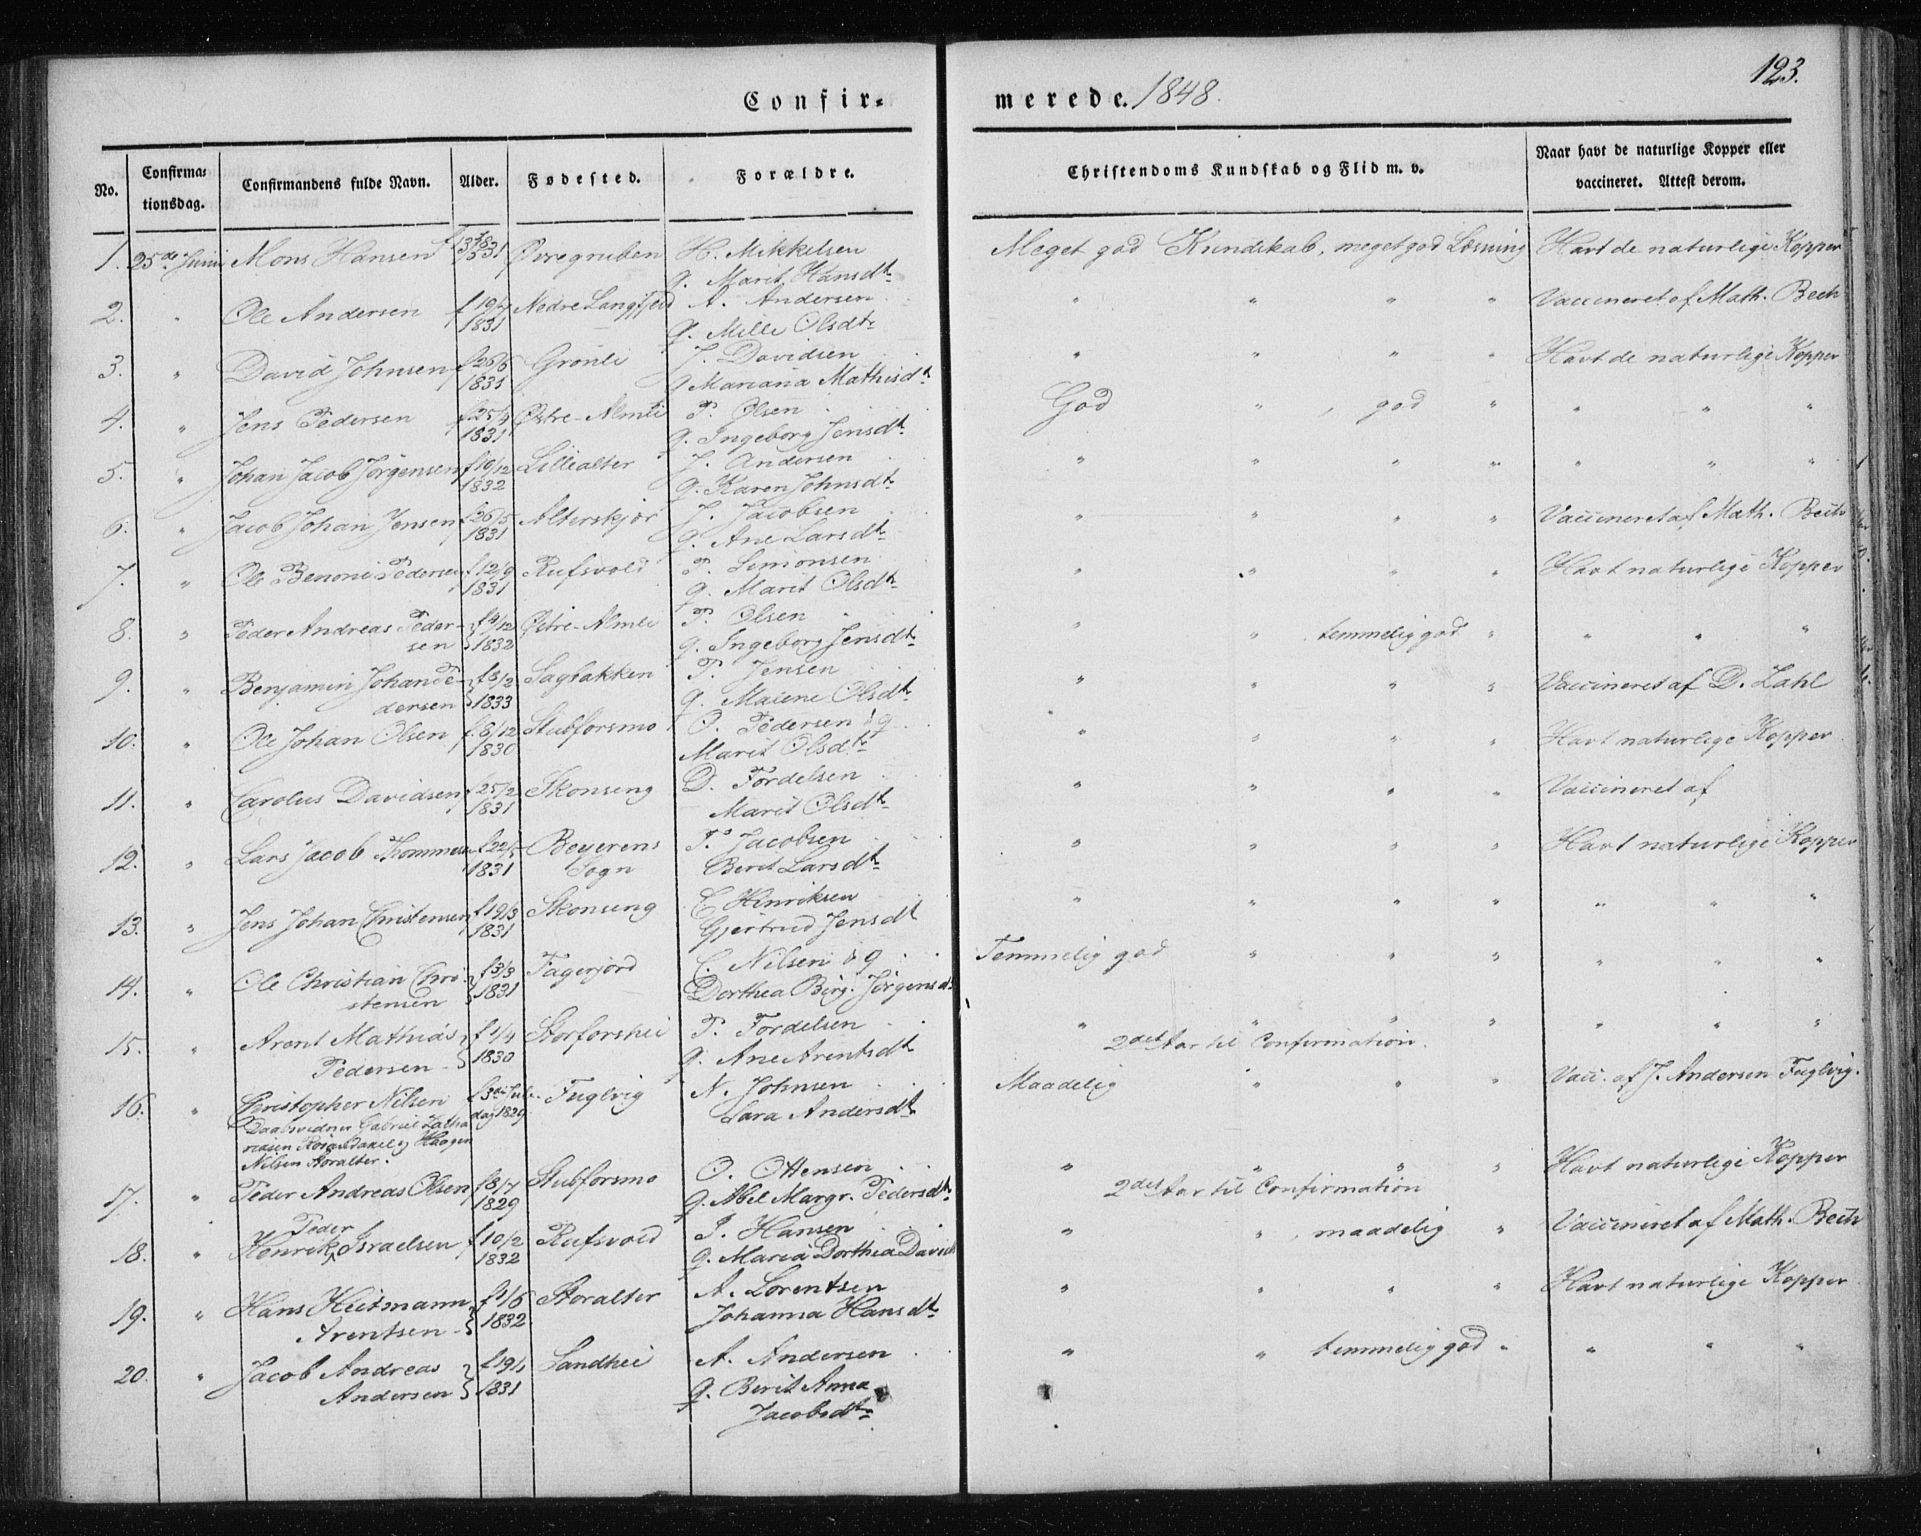 123.
Confir-
merede. 1848.
No.
Confirma-
tionsdag.
Confirmandens fulde Navn.
Alder.
Fødested.
Forældre.
Christendoms Kundskab og Flid m. v.
Naar havt de naturlige Kopper eller
vaccineret. Attest derom.
1. 25de Juni Mons Hansen 1831 Øvregruben H. Mikkelsen Meget god Kundskab, meget god Læsning Havt de naturlige Kopper
q. Marit Hansdtr
2. " Ole Andersen f 19/4 Nedre Langfjeld A. Andersen " " " " Vaccineret af Math. Bech
1831 q. Mille Olsdtr
3. " David Johnsen f 26/6 Grønli J. Davidsen " " " " Havt de naturlige Kopper
1831 q Mariana Mathisdtr
4. " Jens Pedersen f 25/4 Østre-Almli P. Olsen God " , god " " " "
1831 q. Ingeborg Jensdtr
5. " Johan Jacob Jørgensen f 10/12 Lillealter J. Andersen " " " " " " "
1832 q. Karen Johnsdtr
6. " Jacob Johan Jensen f 26/5 Alterskjær J. Jacobsen " " " " Vaccineret af Math. Bech
1831 q. Ane Larsdtr
7. " Ole Benoni Pedersen f 12/9 Rufsvold P. Simonsen " " " " Havt naturlige Kopper
1831 q. Marit Olsdtr
8. " Peder Andreas Peder- f 4/12 Østre-Almli P. Olsen " " temmelig god " " " "
sen 1832 q. Ingeborg Jensdtr
9. " Benjamin Johan Pe- f 3/2 Sagbakken P. Jensen " " " " Vaccineret af D. Zahl
dersen 1833 q. Malene Olsdtr
10. " Ole Johan Olsen f. 8/12 Stubforsmo O. Pedersen & q " " " " Havt naturlige Kopper
1830 Marit Olsdtr
11. " Carolus Davidsen f 25/2 Skonseng D. Fordelsen " " " " Vaccineret af
1831 Marit Olsdtr
12. " Lars Jacob Thommesen Beyerens T. Jacobsen " " " " Havt naturlige Kopper
1831 Sogn Berit Larsdtr
13. " Jens Johan Christensen f 19/3 Skonseng C Henriksen " " " " " " "
1831 Gjertrud Jensdt
14. " Ole Christian Chri- f 3/3 Fagerjord C. Nilsen & q Temmelig god " " " " " "
stensen 1831 Dorthea Birg. Jørgensdt
15. " Arent Mathias f 1/4 Storforshei P. Fordelsen " " " " " " "
Pedersen 1830 q. Ane Arentsdt 2det Aar til Confirmation.
16. " Christopher Nilsen f 3die Jule- Fuglvig N. Johnsen Maadelig " " " Vacc. af J. Andersen Fuglvig.
dag 1829 Sara Andersdt
Daabsvidner Gabriel Zacha
riasen Haagen
Nilsen Storalter.
17. " Peder Andreas Olsen f 8/7 Stubforsmo O. Ottensen " " " " Havt naturlige Kopper
1829 q. Abel Margr. Pedersdtr 2det Aar til Confirmation
18. " Henrik Peder Israelsen f 10/2 Rufsvold I. Hansen " " , maadelig " Vaccineret af Math. Bech
1832 q. Maria Dorthea Davids
19. " Hans Heitmann f 1/6 Storalter A. Lorentsen " " " " Havt naturlige Kopper
Arentsen 1832 Johanna Hansdtr
20. " Jacob Andreas f 19/1 Sandhei A. Andersen " " temmelig god " " " "
Andersen 1831 q. Berit Anna
Jacobsdtr